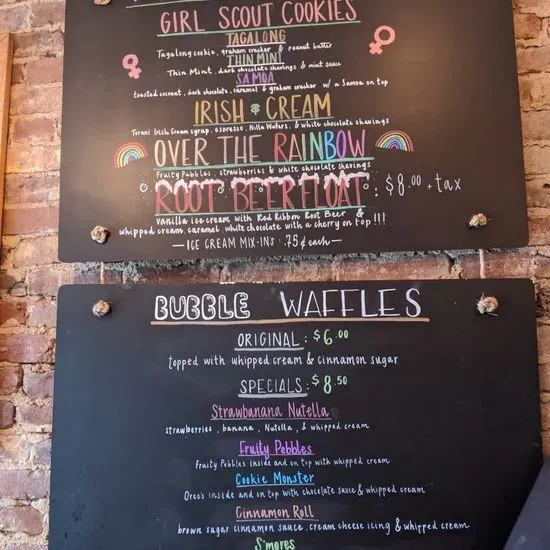 GIRL SCOUT COOKIES
TAGALONG
Tagalong cookie, graham cracker & peanut butter
THIN MINT
Thin Mint, dark chocolate shavings & mint sauce
SAMOA
toasted coconut, dark chocolate, caramel & graham cracker w/ a Samoa on top
IRISH CREAM
Torani Irish Cream syrup, espresso, Nilla Wafers, & white chocolate shavings
OVER THE RAINBOW
Fruity Pebbles, strawberries & white chocolate shavings
ROOT BEER FLOAT: $8.00 + tax
vanilla ice cream with Red Ribbon Root Beer &
whipped cream, caramel, white chocolate with a cherry on top!!!
— ICE CREAM MIX-INS: .75¢ each —
BUBBLE WAFFLES
ORIGINAL: $6.00
topped with whipped cream & cinnamon sugar
SPECIALS: $8.50
Strawbanana Nutella
strawberries, banana, Nutella, & whipped cream
Fruity Pebbles
Fruity Pebbles inside and on top with whipped cream
Cookie Monster
Oreo's inside and on top with chocolate sauce & whipped cream
Cinnamon Roll
brown sugar cinnamon sauce, cream cheese icing & whipped cream
S'mores